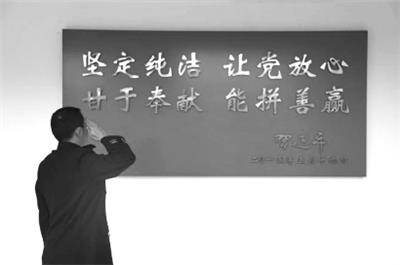 坚定纯洁 让党放心
甘于奉献 能拼善赢
习近平